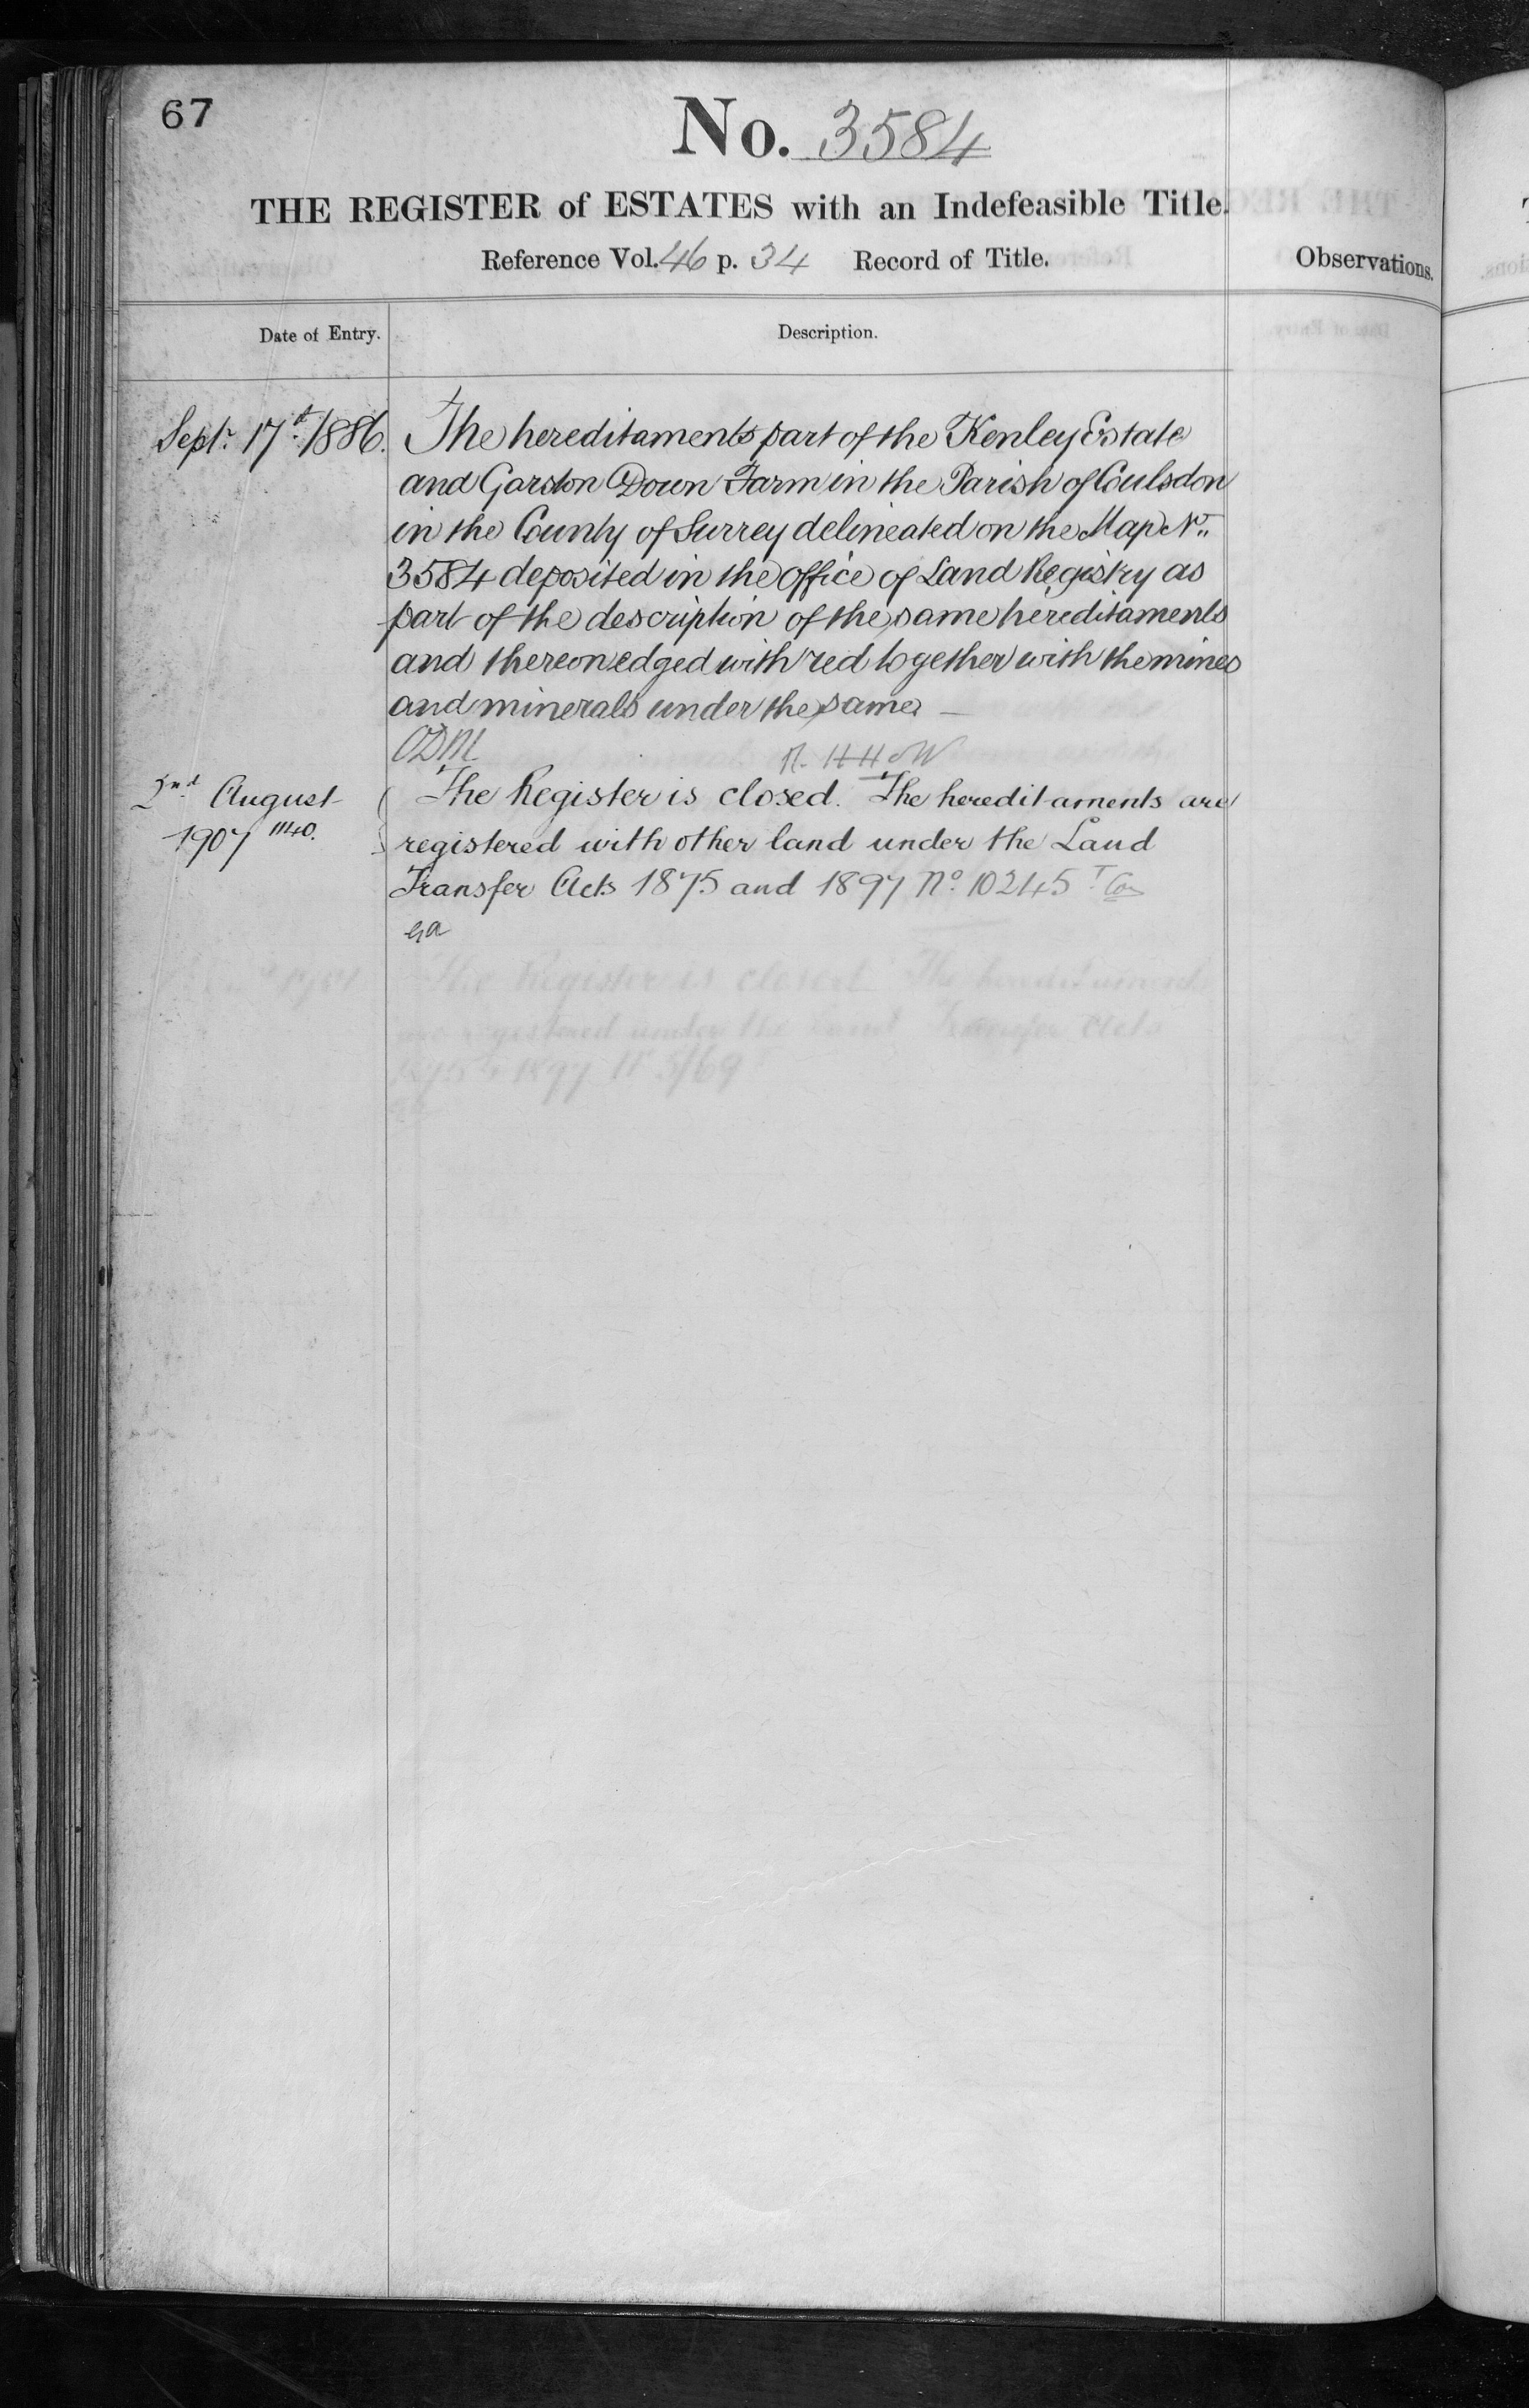 67
No. 3584
THE REGISTER of ESTATES with an Indefeasible Title.
Reference Vol. 46 p. 34 Record of Title.
Observations.
Date of Entry.
Description.
Sept. 17th 1886.
The hereditaments part of the Kenley Estate
and Garston Down Farm in the Parish of Coulsdon
in the County of Surrey delineated on the Map No.
3584 deposited in the office of Land Registry as
part of the description of the same hereditaments
and thereon edged with red together with the mines
and minerals under the same
2nd August
1907 1140.
The Register is closed. The hereditaments are
registered with other land under the Land
Transfer Acts 1875 and 1897 No. 10245